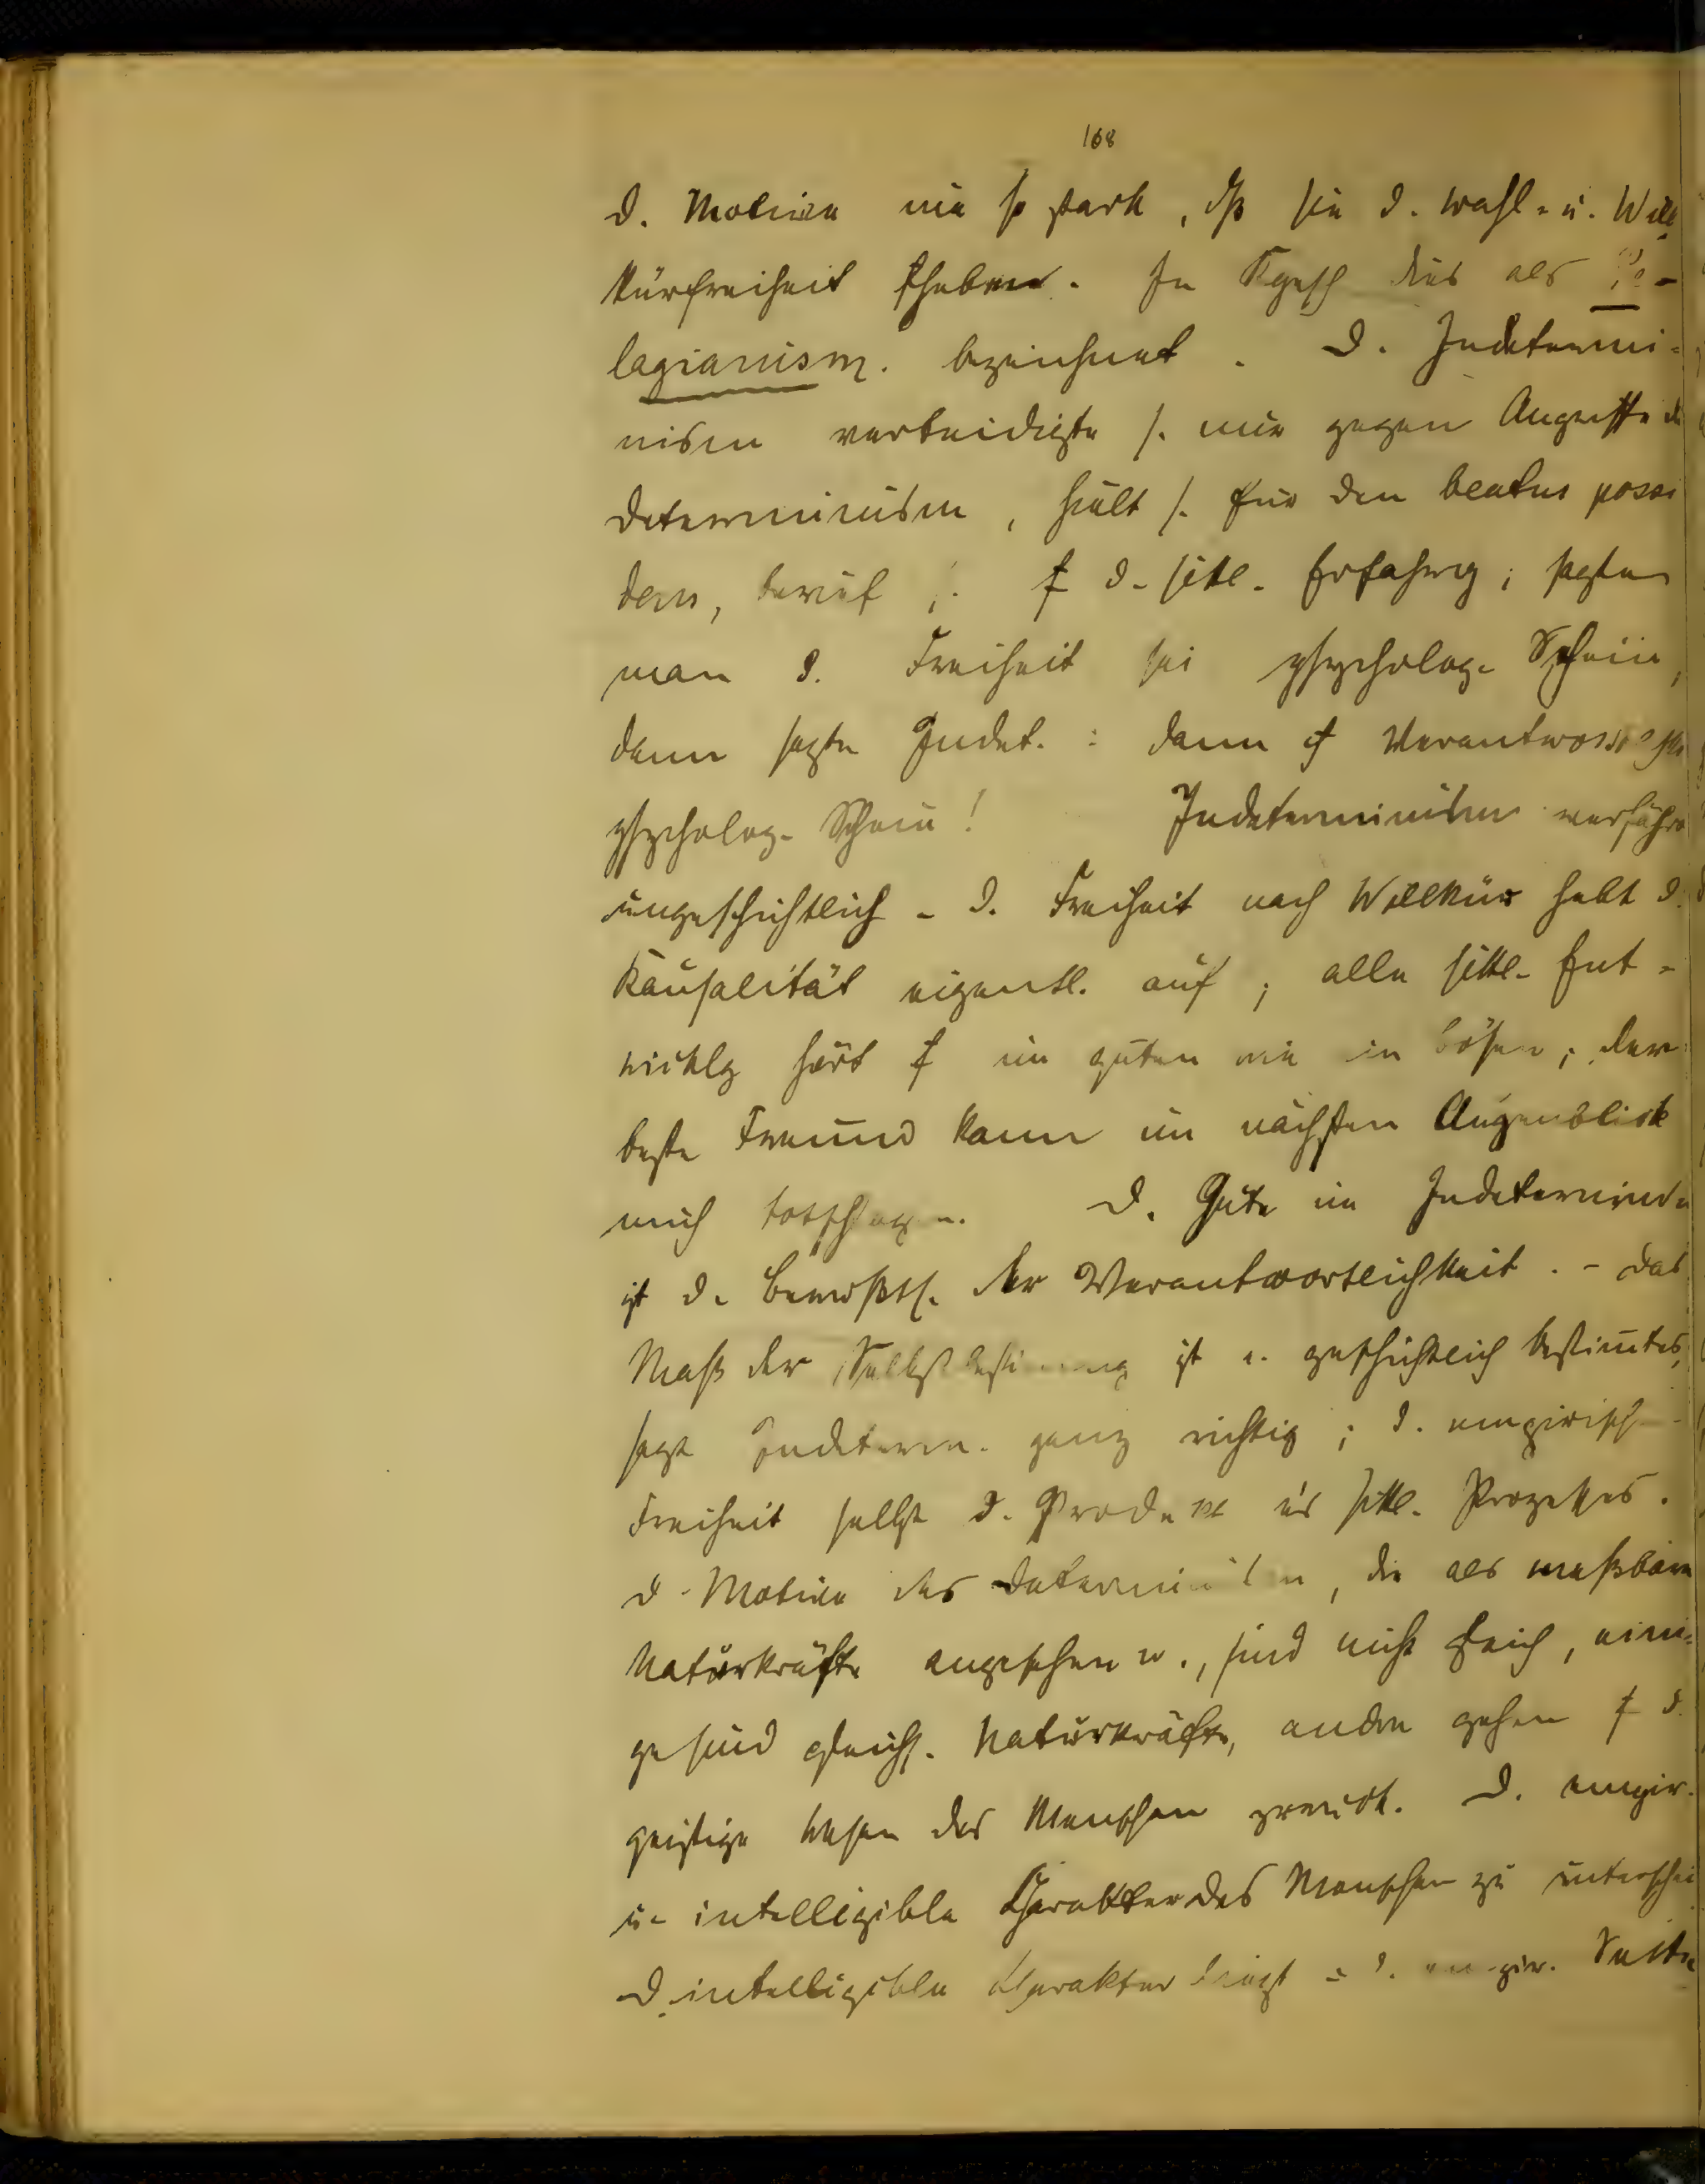 168
d. Motive nie so stark, dß sie d. Wahl- u. Will
kürfreiheit fheben. In Kgesch dies als Pe-
lagianism. bezeichnet. D. Indetermi-
nism verteidigte s. nur gegen Angriffe d
Determinism, hielt s. für den beatus possi
dens, berief s. f d. sittl. Erfahrg; sagte
man d. Freiheit sei psycholog. Schein,
dann sagte Indet.: dann
psycholog. Schein! Indeterminism verfährt
ungeschichtlich - d. Freiheit nach Willkür hebt d.
Kausalität eigentl. auf; alle sittl. Ent-
wicklg hört f im guten wie im bösen; der
beste Freund kann im nächsten Augenblick
mich totschlagen. D. Gute im Indetermin
ist d. Bewußts. der Verantwortlichkeit. - Das
Maß der Selbstbestimmung ist e. geschichtlich bestimtes,
sagt Indeterm. ganz richtig; d. empirisch
Freiheit selbst d. Produkt sittl. Prozesses.
d. Motive des Determinism, die als meßbare
Naturkräfte angesehen w., sind nicht gleich, eini-
ge sind gleichs. Naturkräfte, andre gehen f d.
geistige Wesen des Menschen zurück. D. empir.
u. intelligible Charakter des Menschen zu unterschei
D. intelligible Charakter d. empir. Seite